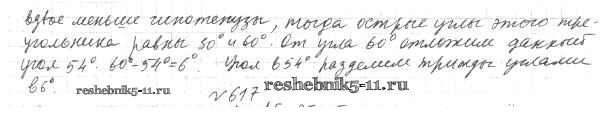 вдвое меньше гипотенузы, тогда острые углы этого тре-
угольника равны 30° и 60°. От угла 60° отложим данный
угол 54°. 60°-54°=6°. Угол 54° разделим трижды углами
в 6°.
reshebnik5-11.ru reshebnik5-11.ru
№617